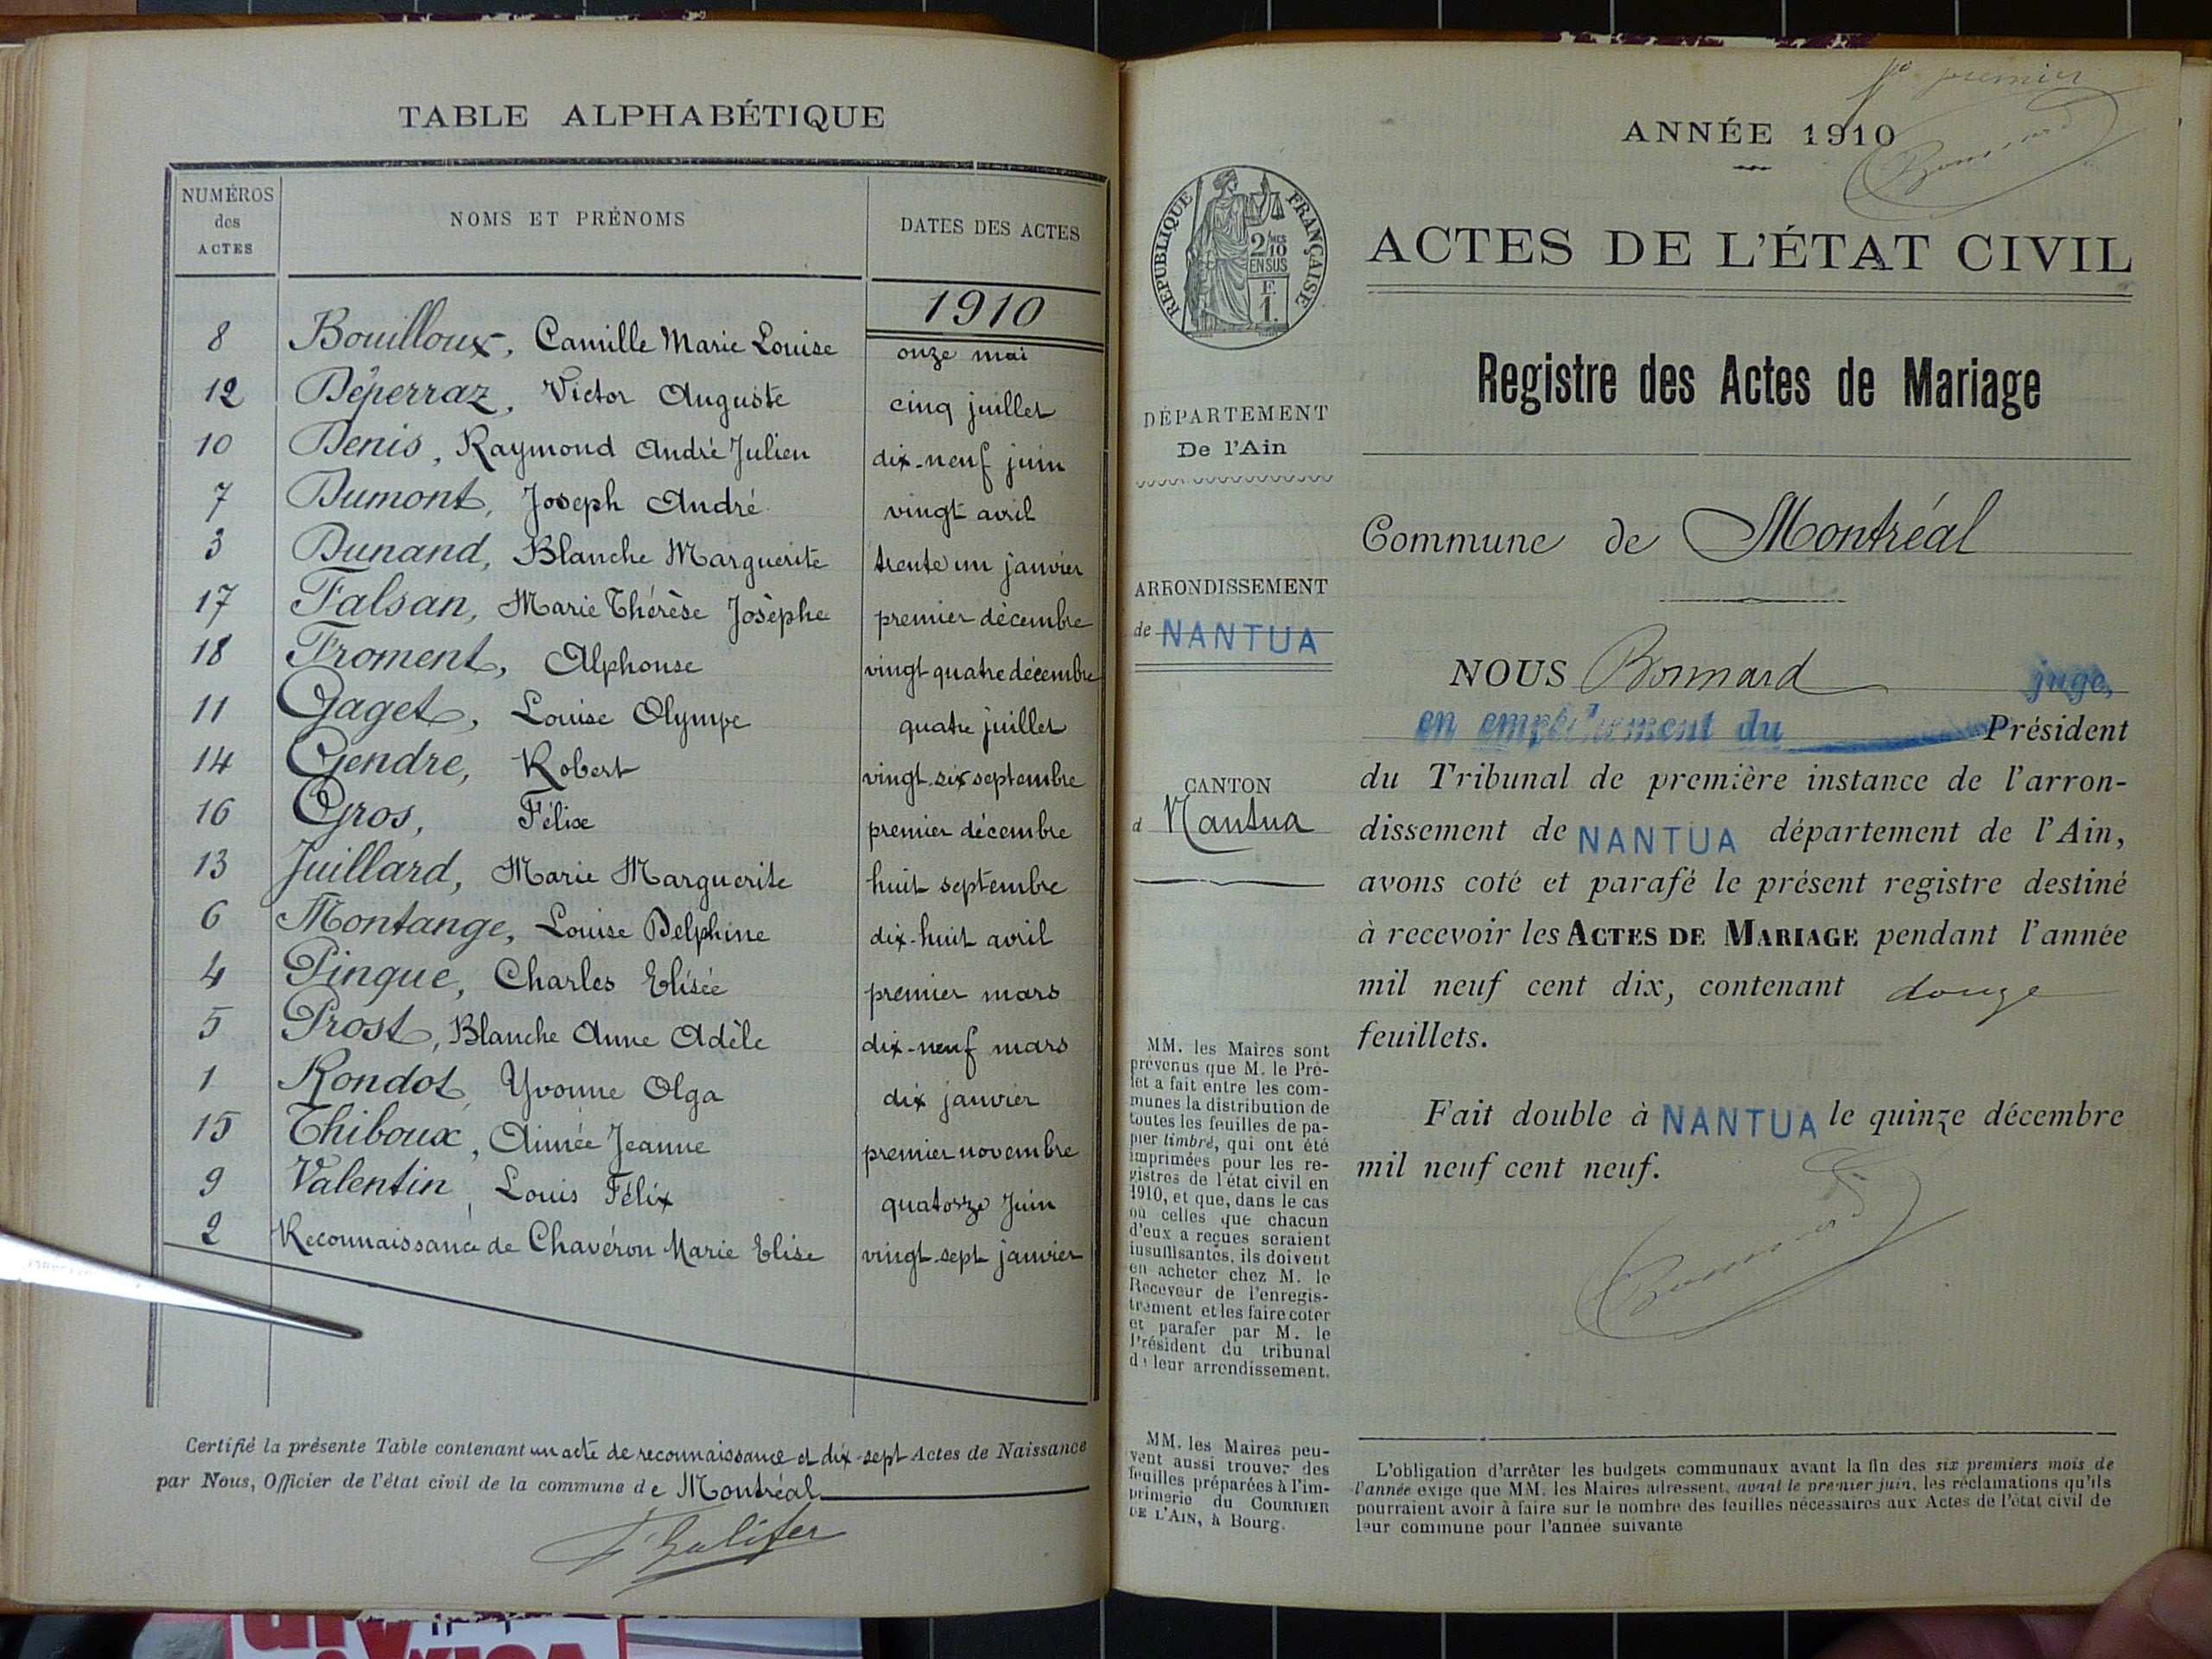 TABLE ALPHABÉTIQUE
NUMÉROS
des
ACTES
NOMS ET PRÉNOMS
DATES DES ACTES
1910
8 Bouilloux, Camille Marie Louise onze mai
12 Déperraz, Victor Auguste cinq juillet
10 Denis, Raymond André Julien dix-neuf juin
7 Dumont, Joseph André vingt avril
3 Dunand, Blanche Marguerite trente un janvier
17 Falsan, Marie Thérèse Josèphe premier décembre
18 Froment, Alphonse vingt quatre décembre
11 Gaget, Louise Olympe quatre juillet
14 Gendre, Robert vingt-six septembre
16 Gros, Félix premier décembre
13 Juillard, Marie Marguerite huit septembre
6 Montange, Louise Delphine dix-huit avril
4 Pingue, Charles Elisée premier mars
5 Prost, Blanche Anne Adèle dix-neuf mars
1 Rondot, Yvonne Olga dix janvier
15 Thiboux, Aimée Jeanne premier novembre
9 Valentin, Louis Félix quatorze Juin
2 Reconnaissance de Chavéron Marie Elise vingt-sept janvier
Certifié la présente Table contenant un acte de reconnaissance et dix-sept Actes de Naissance
par Nous, Officier de l'état civil de la commune de Montréal
premier
ANNÉE 1910
RÉPUBLIQUE FRANÇAISE
2/10
EN SUS
F.
1.
ACTES DE L'ÉTAT CIVIL
Registre des Actes de Mariage
DÉPARTEMENT
De l'Ain
ARRONDISSEMENT
de NANTUA
CANTON
d Nantua
Commune de Montréal
NOUS Bonnard juge,
en empêchement du Président
du Tribunal de première instance de l'arron-
dissement de NANTUA département de l'Ain,
avons coté et parafé le présent registre destiné
à recevoir les ACTES DE MARIAGE pendant l'année
mil neuf cent dix, contenant douze
feuillets.
Fait double à NANTUA le quinze décembre
mil neuf cent neuf.
Bonnard
MM. les Maires sont
prévenus que M. le Pré-
fet a fait entre les com-
munes la distribution de
toutes les feuilles de pa-
pier timbré, qui ont été
imprimées pour les re-
gistres de l'état civil en
1910, et que, dans le cas
où celles que chacun
d'eux a reçues seraient
insuffisantes, ils doivent
en acheter chez M. le
Receveur de l'enregis-
trement et les faire coter
et parafer par M. le
Président du tribunal
de leur arrondissement.
MM. les Maires peu-
vent aussi trouver des
feuilles préparées à l'im-
primerie du COURRIER
DE L'AIN, à Bourg.
L'obligation d'arrêter les budgets communaux avant la fin des six premiers mois de
l'année exige que MM. les Maires adressent, avant le premier juin, les réclamations qu'ils
pourraient avoir à faire sur le nombre des feuilles nécessaires aux Actes de l'état civil de
leur commune pour l'année suivante